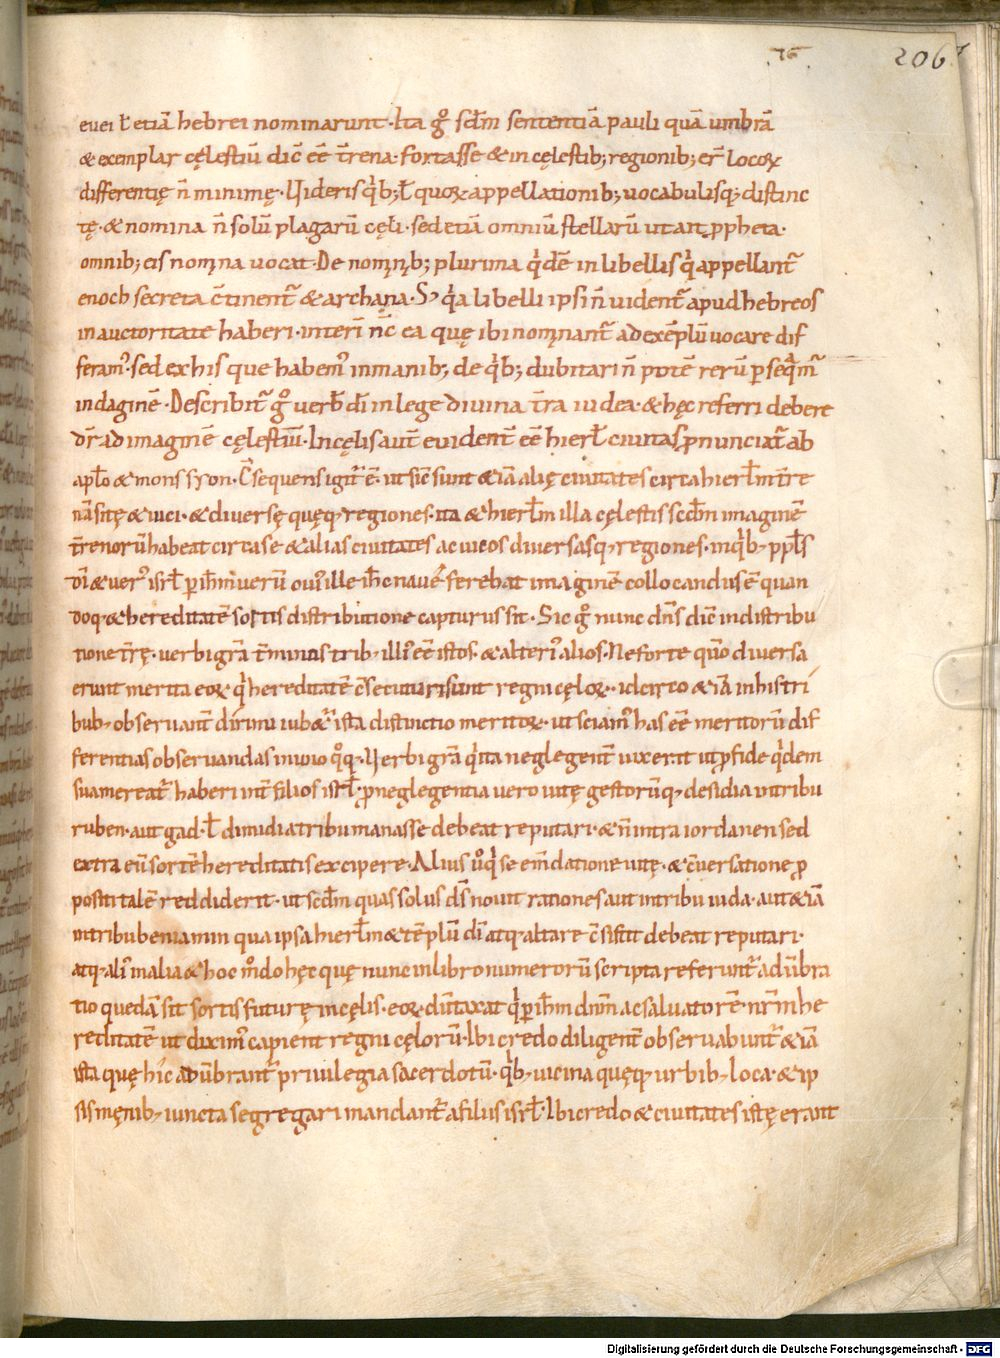 76 206
euei ł etiā hebrei nominarunt· Ita gͦ scdm̄ sententiā pauli quā umbrā
& exemplar cęlestiū dic̄ eē t̄rena· fortasse & in cęlestib; regionib; er̄ locoꝝ
differentię n̄ minimę· Uideris q̍b; ł quoꝝ appellationib; uocabulisq; distinc
tę· & nomina n̄ solū plagarū cęli· sed etiā omniū stellarū ut ait ꝓpheta·
omnib; eis nomina uocat· De nominib; plurima q̍dē in libellis q̍ appellant̄
enoch secreta c̄tinent̄ & archana· S; q̍a libelli ipsi n̄ uident̄ apud hebreos
in auctoritate haberi· interī nc̄ ea quę ibi nominant̄ ad exēplū uocare dif
feram᷒· sed ex his que habem᷒ in manib; de q̍b; dubitari n̄ potē rerū ꝑseq̍m̄
indaginē· Describit̄ gͦ uerb̄ dī in lege diuina t̄ra iudea· & hęc referri debere
dr̄ ad imaginē cęlestiū· In cęlis aut̄ euident̄ eē hierl̄m ciuitas ꝓnunciat̄ ab
apl̄o & mons syon· C̄sequens igit̄ ē· ut sic̄ sunt & iā alię ciuitates circa hierl̄m t̄re
nā sitę & uici· & diuersę quęq; regiones· ita & hierl̄m illa cęlestis scdm̄ imaginē
t̄renorū habeat circa se & alias ciuitates ac uicos diuersasq; regiones· in q̍b; ppl̄s
dī & uer᷒ isrl̄ ꝑ ih̄m uerū oui᷒ ille ih̄c naue ferebat imaginē collocandus ē quan
doq; & hereditatē sortis distributione capturus sit· Sic gͦ nunc dn̄s dic̄ in distribu
tione t̄rę· uerbi gr̄a t̄minas trib; illi᷒ eē istos· & alteri᷒ alios· Ne forte quō diuersa
erunt merita eoꝝ q̍ hereditatē c̄secuturi sunt regni cęloꝝ· idcirco & iā in his tri
bub; obseruant̄ diuini iub& ista distinctio meritoꝝ· ut sciam᷒ has eē meritorū dif
ferentias obseruandas in uno q°q;· Uerbi gr̄a q̍ ita neglegent̄ uixerit ut ꝓ fide q̍dem
sua mereat̄ haberi int̄ filios isrl̄· ꝓ neglegentia uero uitę gestorūq; desidia in tribu
ruben· aut gad· ł dimidia tribu manasse debeat reputari· & n̄ intra iordanen sed
extra eū sortē hereditatis excipere· Alius uͦ q̍ se em̄datione uitę· & c̄uersatione ꝓ
positi talē reddiderit· ut scdm̄ quas solus ds̄ nouit rationes aut in tribu iuda· aut & iā
in tribu beniamin qua ipsa hierl̄m & tēplū dī atq; altare c̄sistit debeat reputari·
atq; ali᷒ in alia & hoc m̊do hęc quę nunc in libro numerorū scripta referunt̄ adūbra
tio quedā sit sortis futurę in cęlis· eoꝝ dūtaxat q̍ ꝑ ih̄m dnm̄ ac saluatorē nr̄m he
reditatē ut dixim᷒ capient regni cęlorū· Ibi credo diligent̄ obseruabunt̄ & iā
ista quę hic adūbrant̄ priuilegia sacerdotū· q̍b; uicina quęq; urbib; loca· & ip
sis męnib; iuncta segregari mandant̄ a filiis isrl̄· Ibi credo & ciuitates istę erant
Digitalisierung gefördert durch die Deutsche Forschungsgemeinschaft - DFG